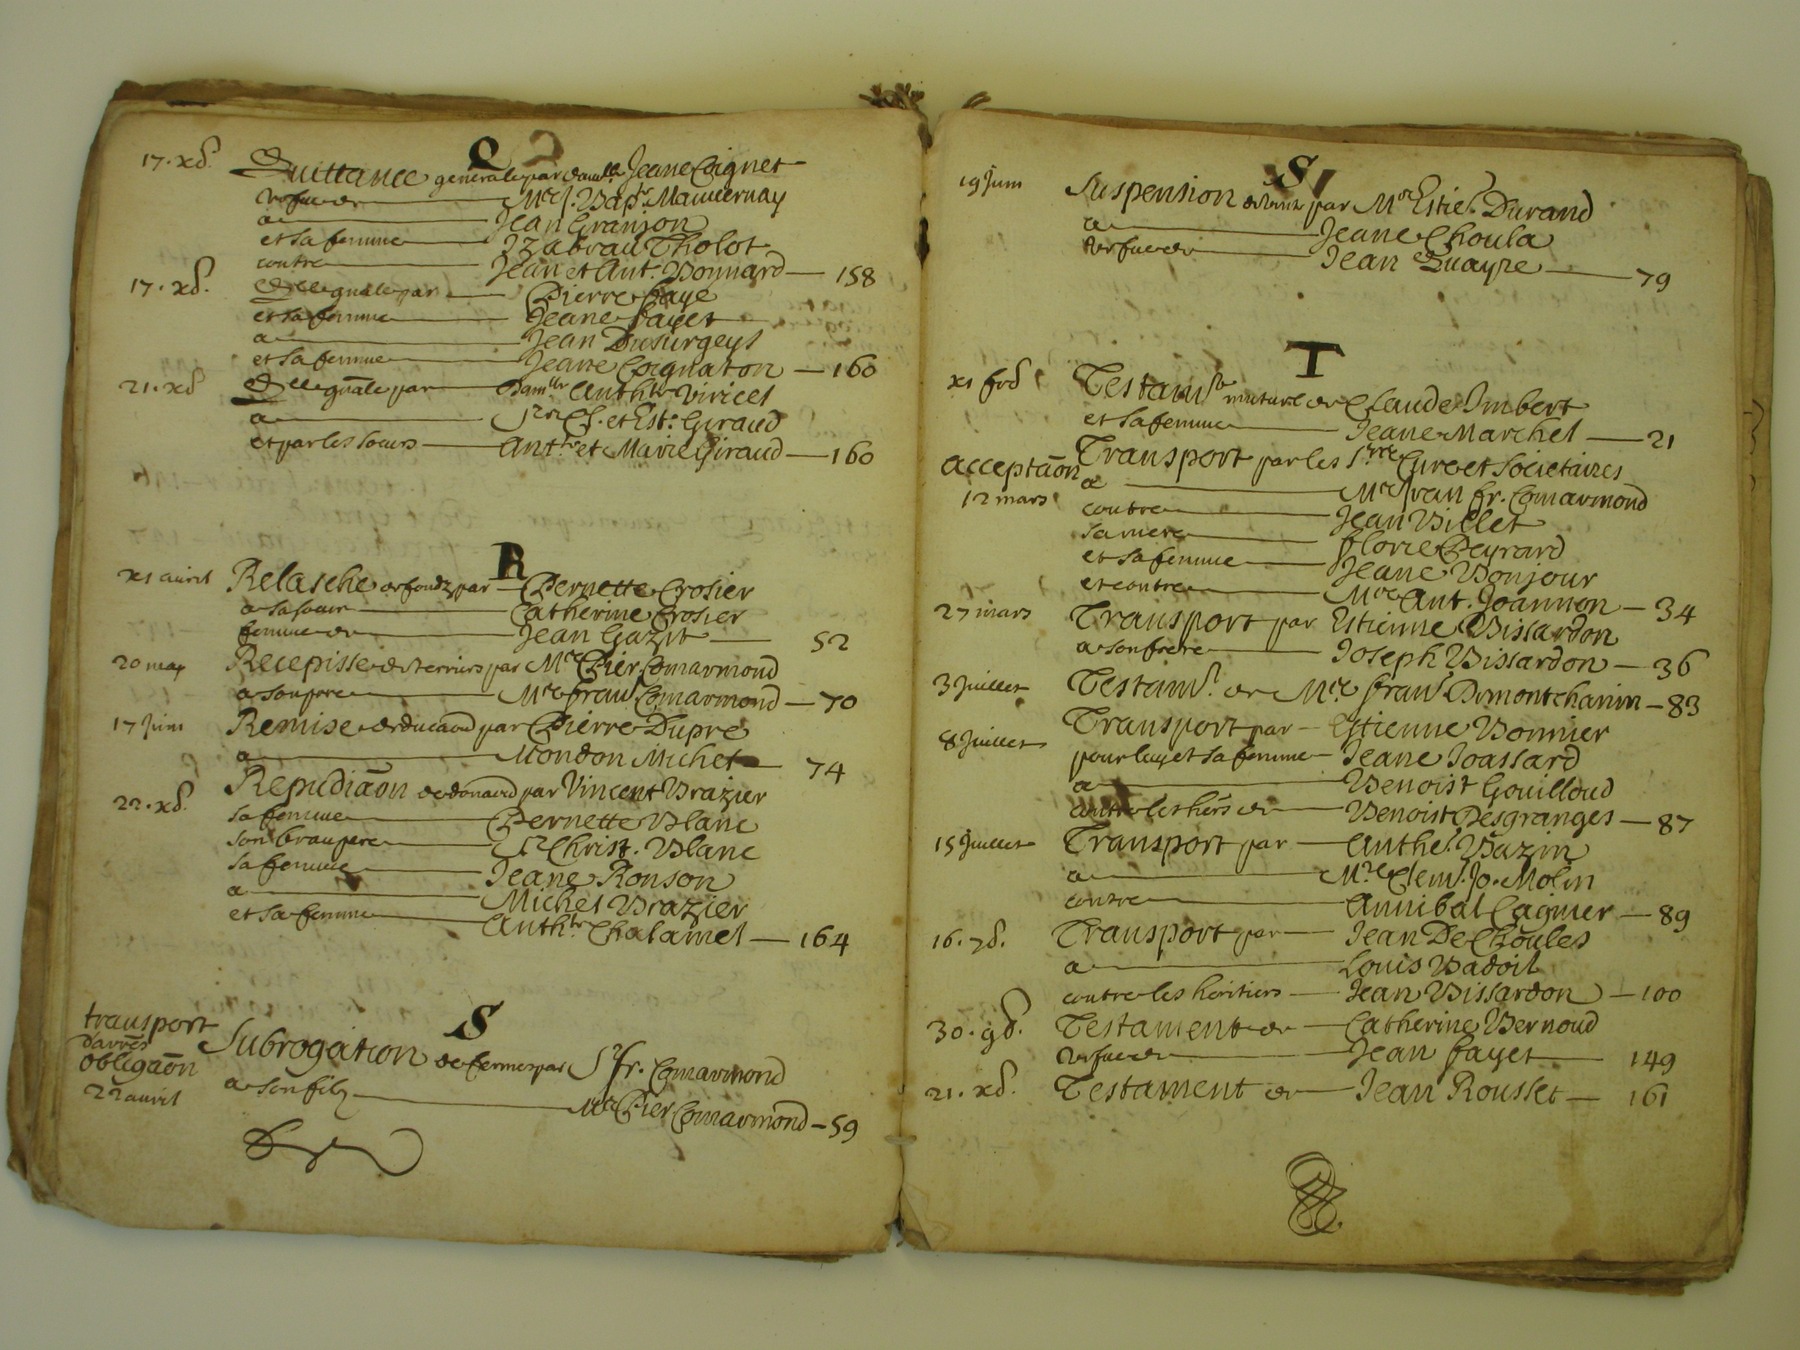 Q
17. xb.
Quittance generale par damlle Jeane Coignet
vefue de Mre J. Bapt. Mauvernay
a Jean Granjon
et sa femme Izabeau Tholot
contre Jean et Ant. Bonnard — 158
17. xb.
Qce gnale par Pierre Faye
et sa femme Jeane Fayet
a Jean Dusurgeyt
et sa femme Jeane Coignaton — 160
21. xb
Qce gnale par Damlle Anthte Viricel
a Srs Cl. et Est. Giraud
et par les soeurs Antte et Marie Giraud — 160
R
xi avril
Relasche de fondz par Pernette Crosier
a sa soeur Catherine Crosier
femme de Jean Gazit — 52
20 may
Recepisse de terriers par Mre Pier Comarmond
a son pere Mre Frans Comarmond — 70
17 Juin
Remise par Pierre Dupre
a Mondon Michel — 74
22. xb.
Repudiaon par Vincent Brazier
sa femme Pernette Blanc
son beau pere Sr Christ. Blanc
sa femme Jeane Ronson
a Michel Brazier
et sa femme Anthte Chalamel — 164
S
transport
d'arrés
obligaon
22 avril
Subrogation de ferme par Sr fr. Comarmond
a son filz Mre Pier Comarmond — 59
S
19 Juin
Suspension par Mre Estie. Durand
a Jeane Choula
vefue de Jean Quayre — 79
T
xi fvb
Testamt mutuel de Claude Imbert
et sa femme Jeane Marchel — 21
acceptaon
12 mars
Transport par les Srs Cure et Societaires
a Mre Jean fr. Comarmond
contre Jean Villet
sa mere Florie Peyrard
et sa femme Jeane Bonjour
et contre Mre Ant. Joannon — 34
27 mars
Transport par Estienne Bissardon
a son frere Joseph Bissardon — 36
3 Juillet
Testamt. de Mre frans Dumontchanin — 83
8 Juillet
Transport par Estienne Bonnier
pour luy et sa femme Jeane Joassard
a Benoist Gouilloud
contre les hers de Benoist Desgranges — 87
15 Juillet
Transport par Anthe. Bazin
a Mre Clemt. Jo. Molin
contre Annibal Cagnier — 89
16. 7b.
Transport par Jean De Choules
a Louis Badoil
contre les heritiers Jean Bissardon — 100
30. 9b.
Testament de Catherine Bernoud
vefue de Jean Fayet 149
21. xb.
Testament de Jean Rousset — 161